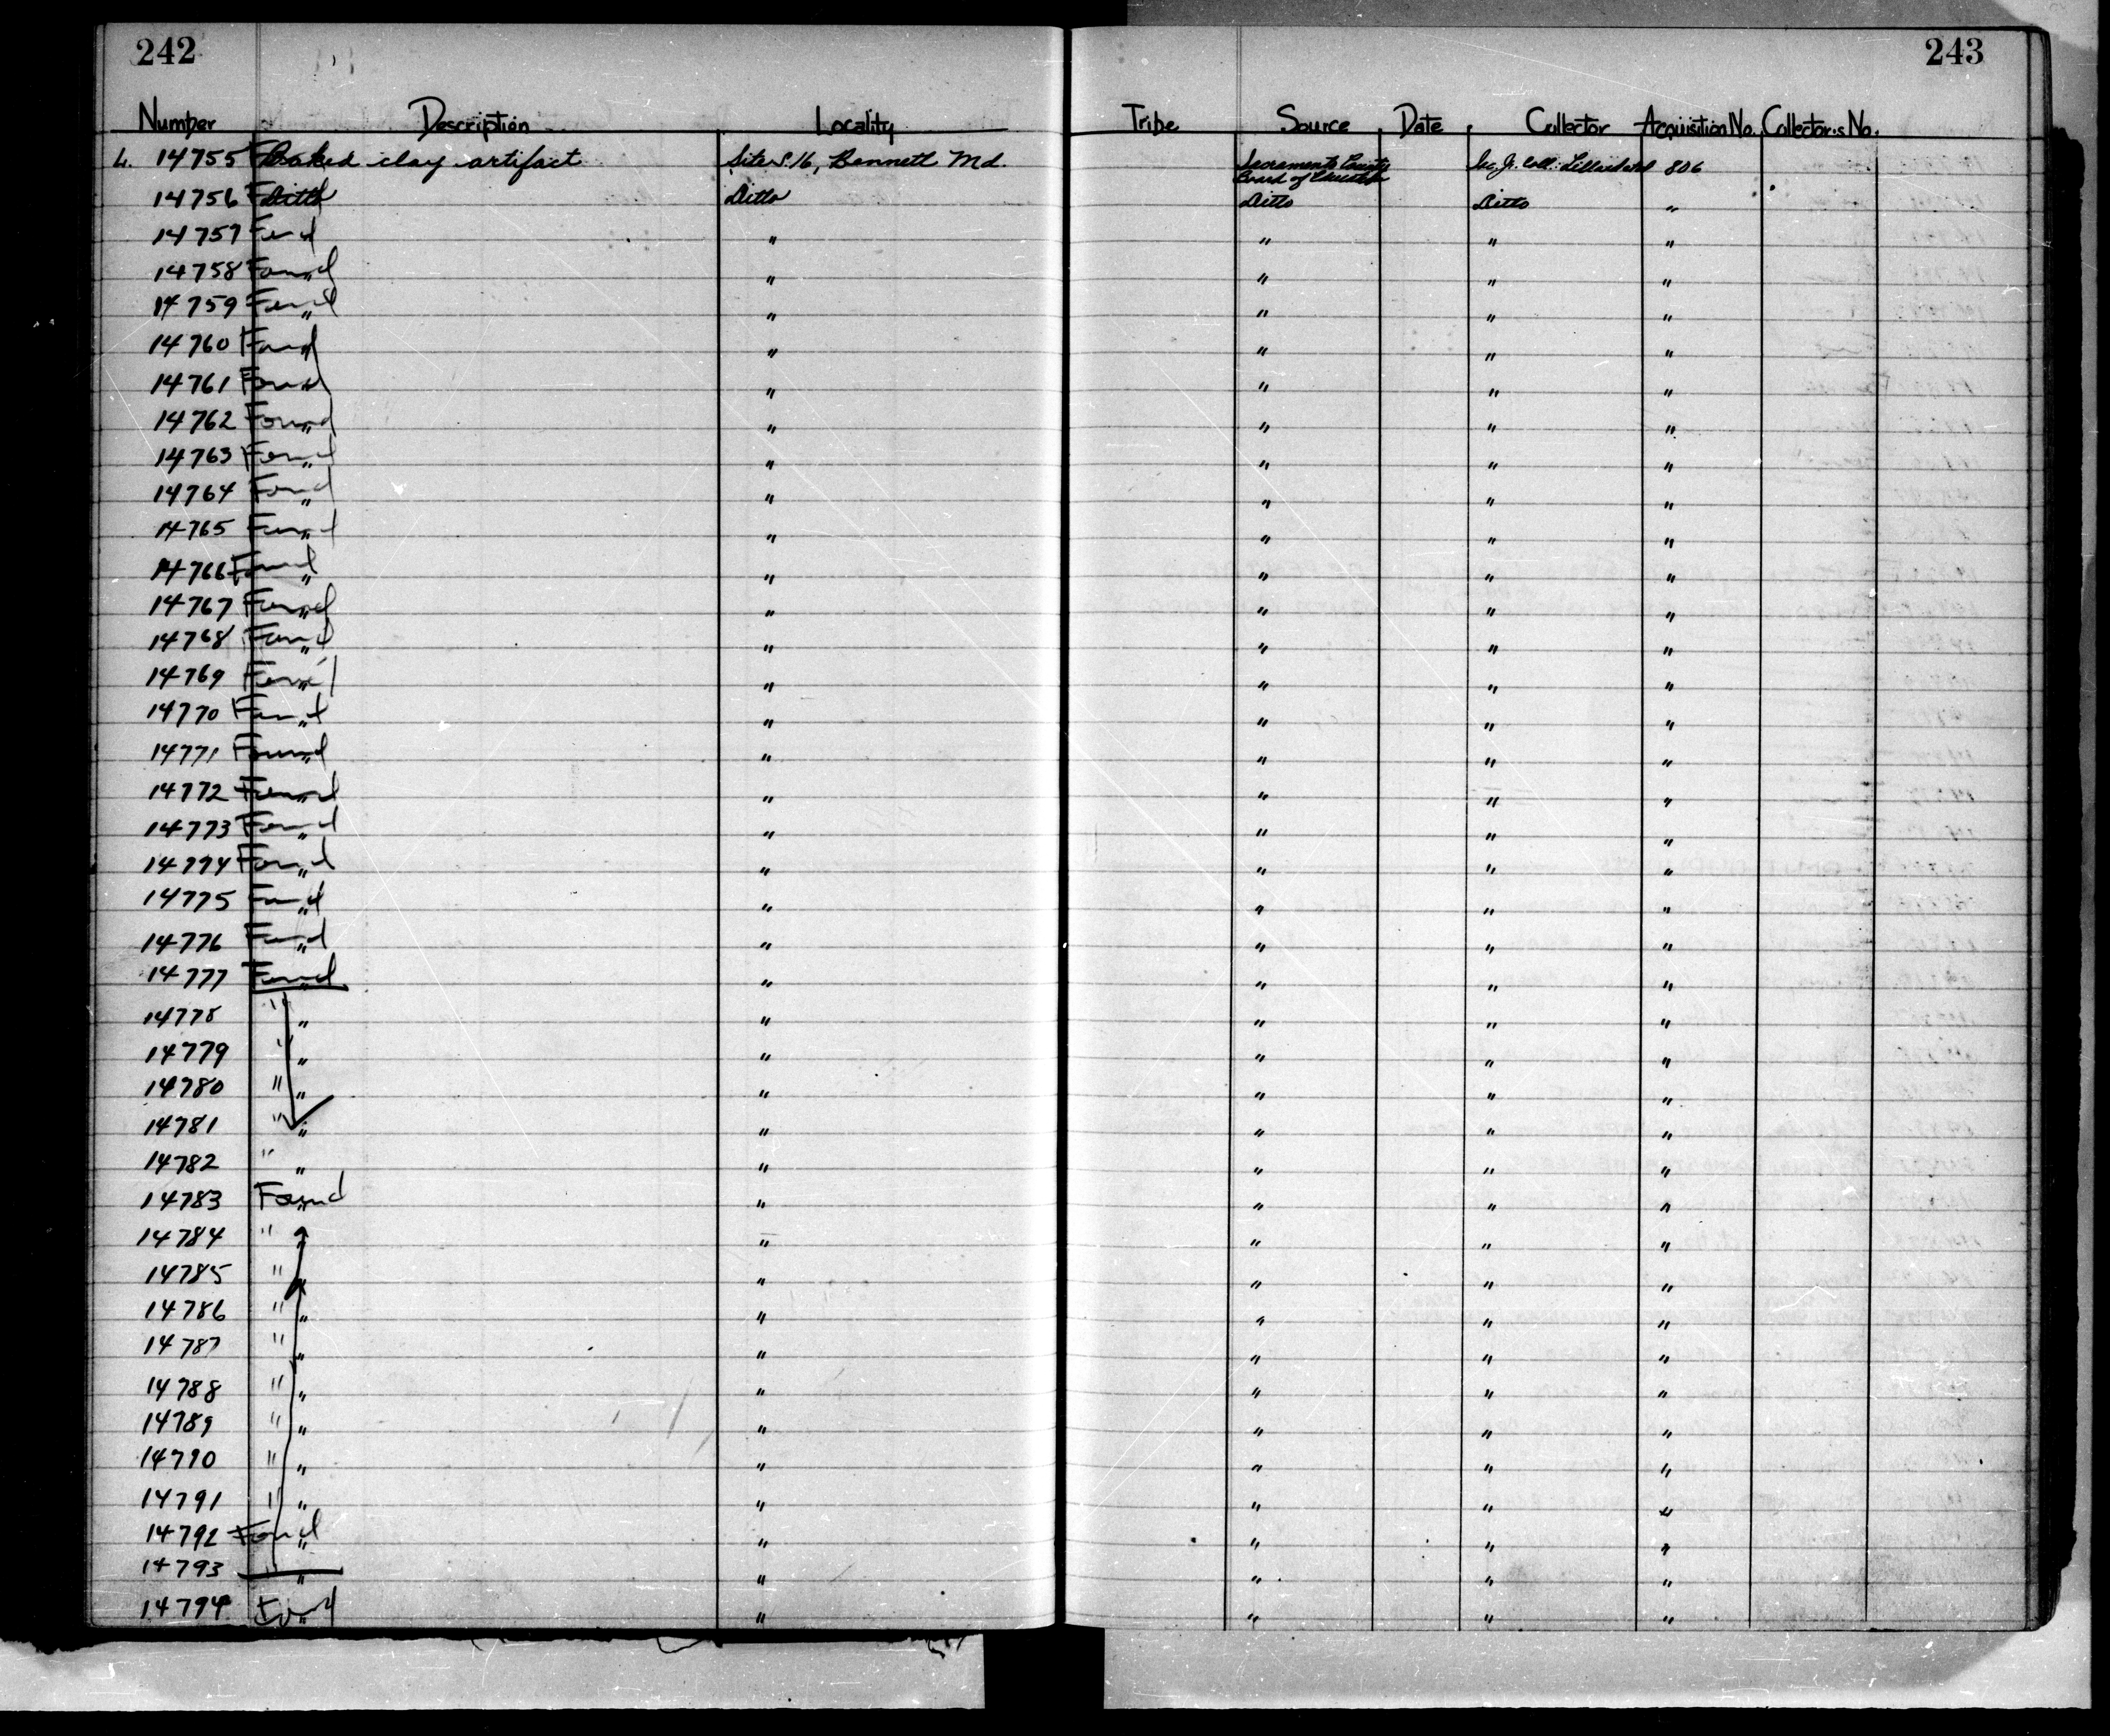 242 243
Number Description Locality Tribe Source Date Collector Acquisition No. Collector's No.
L. 14755 Found Baked clay artifact Site S.16, Bennett Md. Sacramento County Board of Education Sac. Jr. Coll.: Lillard 806
14756 Ditto Ditto Ditto Ditto "
14757 Found " " " " "
14758 Found " " " " "
14759 Found " " " " "
14760 Found " " " " "
14761 Found " " " " "
14762 Found " " " " "
14763 Found " " " " "
14764 Found " " " " "
14765 Found " " " " "
14766 Found " " " " "
14767 Found " " " " "
14768 Found " " " " "
14769 Found " " " " "
14770 Found " " " " "
14771 Found " " " " "
14772 Found " " " " "
14773 Found " " " " "
14774 Found " " " " "
14775 Found " " " " "
14776 Found " " " " "
14777 Found " " " " "
14778 " " " " " "
14779 " " " " " "
14780 " " " " " "
14781 " " " " " "
14782 " " " " " "
14783 Found " " " " "
14784 " " " " " "
14785 " " " " " "
14786 " " " " " "
14787 " " " " " "
14788 " " " " " "
14789 " " " " " "
14790 " " " " " "
14791 " " " " " "
14792 Found " " " " "
14793 " " " " " "
14794 Found " " " " "